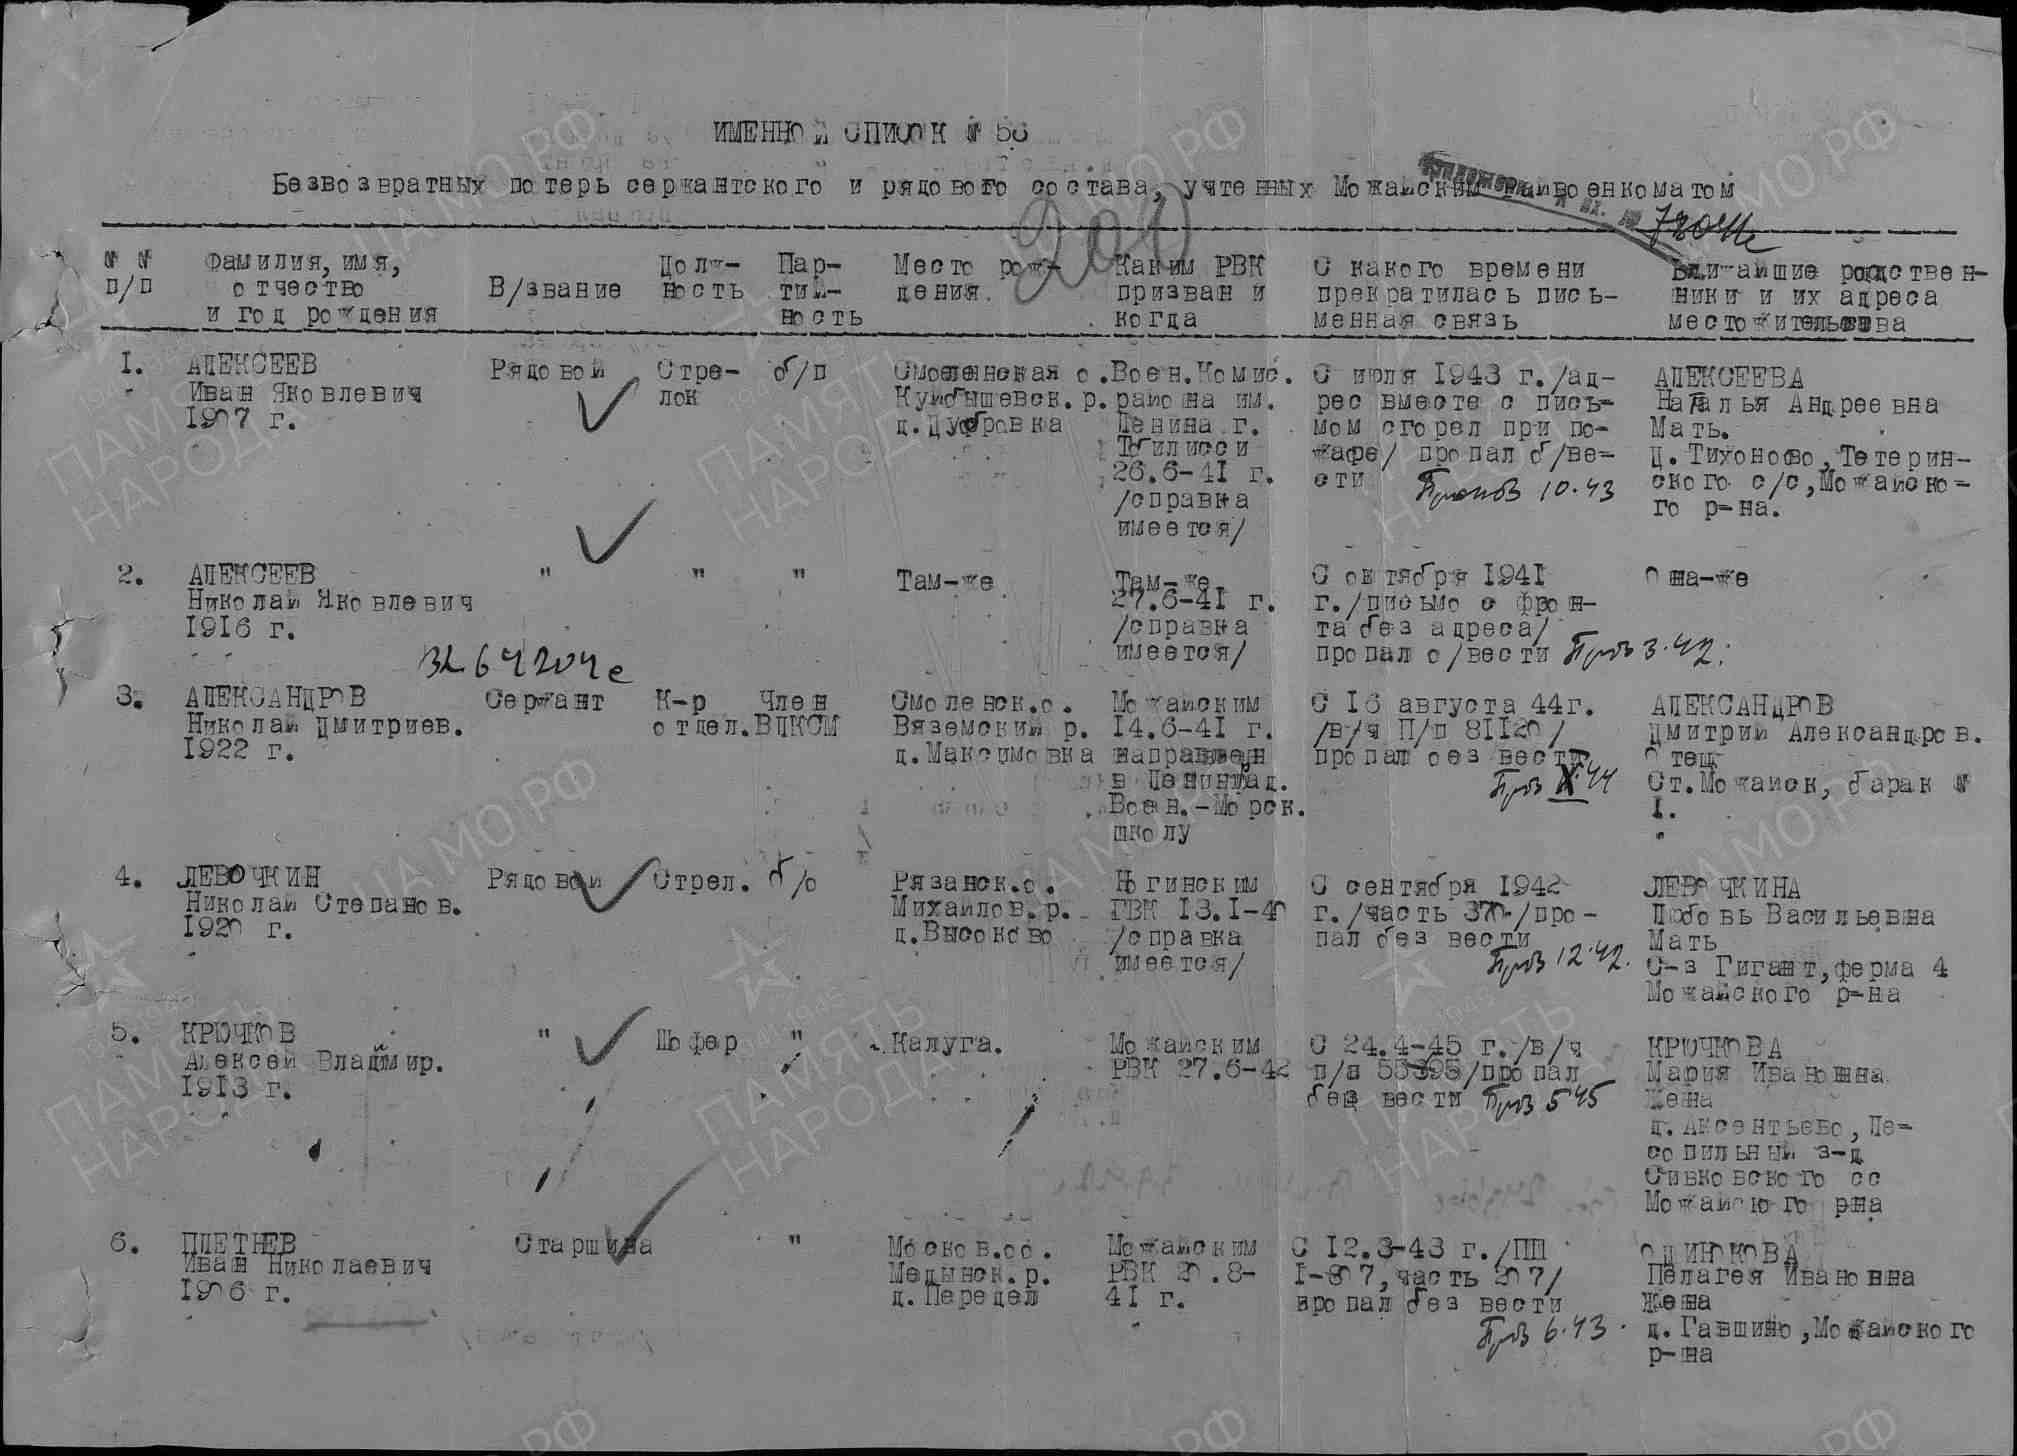 ИМЕННОЙ СПИСОК № 56
Безвозвратных потерь сержантского и рядового состава, учтенных Можайским райвоенкоматом
№ № п/п
Фамилия, имя, отчество и год рождения
В/звание
Долж-
ность
Пар-
тий-
ность
Место рож-
дения.
Каким РВК
призван и
когда
С какого времени
прекратилась пись-
менная связь
Ближайшие родствен-
ники и их адреса
местожительства
1.
АЛЕКСЕЕВ
Иван Яковлевич
1907 г.
Рядовой
Стре-
лок
б/п
Смоленская о.
Куйбышевск. р.
д.Дубровка
Воен.Комис.
района им.
Ленина г.
Тбилисси
26.6-41 г.
/справка
имеется/
С июля 1943 г./ад-
рес вместе с пись-
мом сгорел при по-
жаре/ пропал б/ве-
сти
10.43
АЛЕКСЕЕВА
Наталья Андреевна
Мать.
д. Тихоново, Тетерин-
ского с/с, Можайско-
го р-на.
2.
АЛЕКСЕЕВ
Николай Яковлевич
1916 г.
"
"
"
Там-же
Там-же
27.6-41 г.
/справка
имеется/
С октября 1941
г./письмо с фрон-
та без адреса/
пропал б/вести
3.42.
Она-же
3.
АЛЕКСАНДРОВ
Николай Дмитриев.
1922 г.
Сержант
К-р
отдел.
Член
ВЛКСМ
Смоленск.о.
Вяземский р.
д.Максимовка
Можайским
14.6-41 г.
направлен
в Ленинград.
Воен.-Морск.
школу
С 16 августа 44г.
/в/ч П/п 81120/
пропал без вести
АЛЕКСАНДРОВ
Дмитрий Александров.
Отец
Ст.Можайск, барак №
1.
4.
ЛЕВОЧКИН
Николай Степанов.
1920 г.
Рядовой
Стрел.
б/п
Рязанск.о.
Михайлов.р.
д.Высоково
ГВК 13.1-40
/справка
имеется/
С сентября 1942
г./часть 370/про-
пал без вести
12.42.
ЛЕВОЧКИНА
Любовь Васильевна
Мать
С-з Гигант,ферма 4
Можайского р-на
5.
КРЮЧКОВ
Алексей Владимир.
1913 г.
"
Шофер
"
Калуга.
Можайским
РВК 27.6-42
С 24.4-45 г./в/ч
п/п 55395/пропал
без вести
5 45
КРЮЧКОВА
Мария Ивановна
Жена
д.Аксентьево, Ле-
сопильный з-д
Сивковского сс
Можайского р-на
6.
ПЛЕТНЕВ
Иван Николаевич
1906 г.
Старшина
"
Москов.об.
Медынск.р.
д.Передел
Можайским
РВК 20.8-
41 г.
С 12.3-43 г./ПП
1-807,часть 207/
пропал без вести
6.43.
ОДИНОКОВА
Пелагея Ивановна
Жена
д.Гавшино,Можайского
р-на